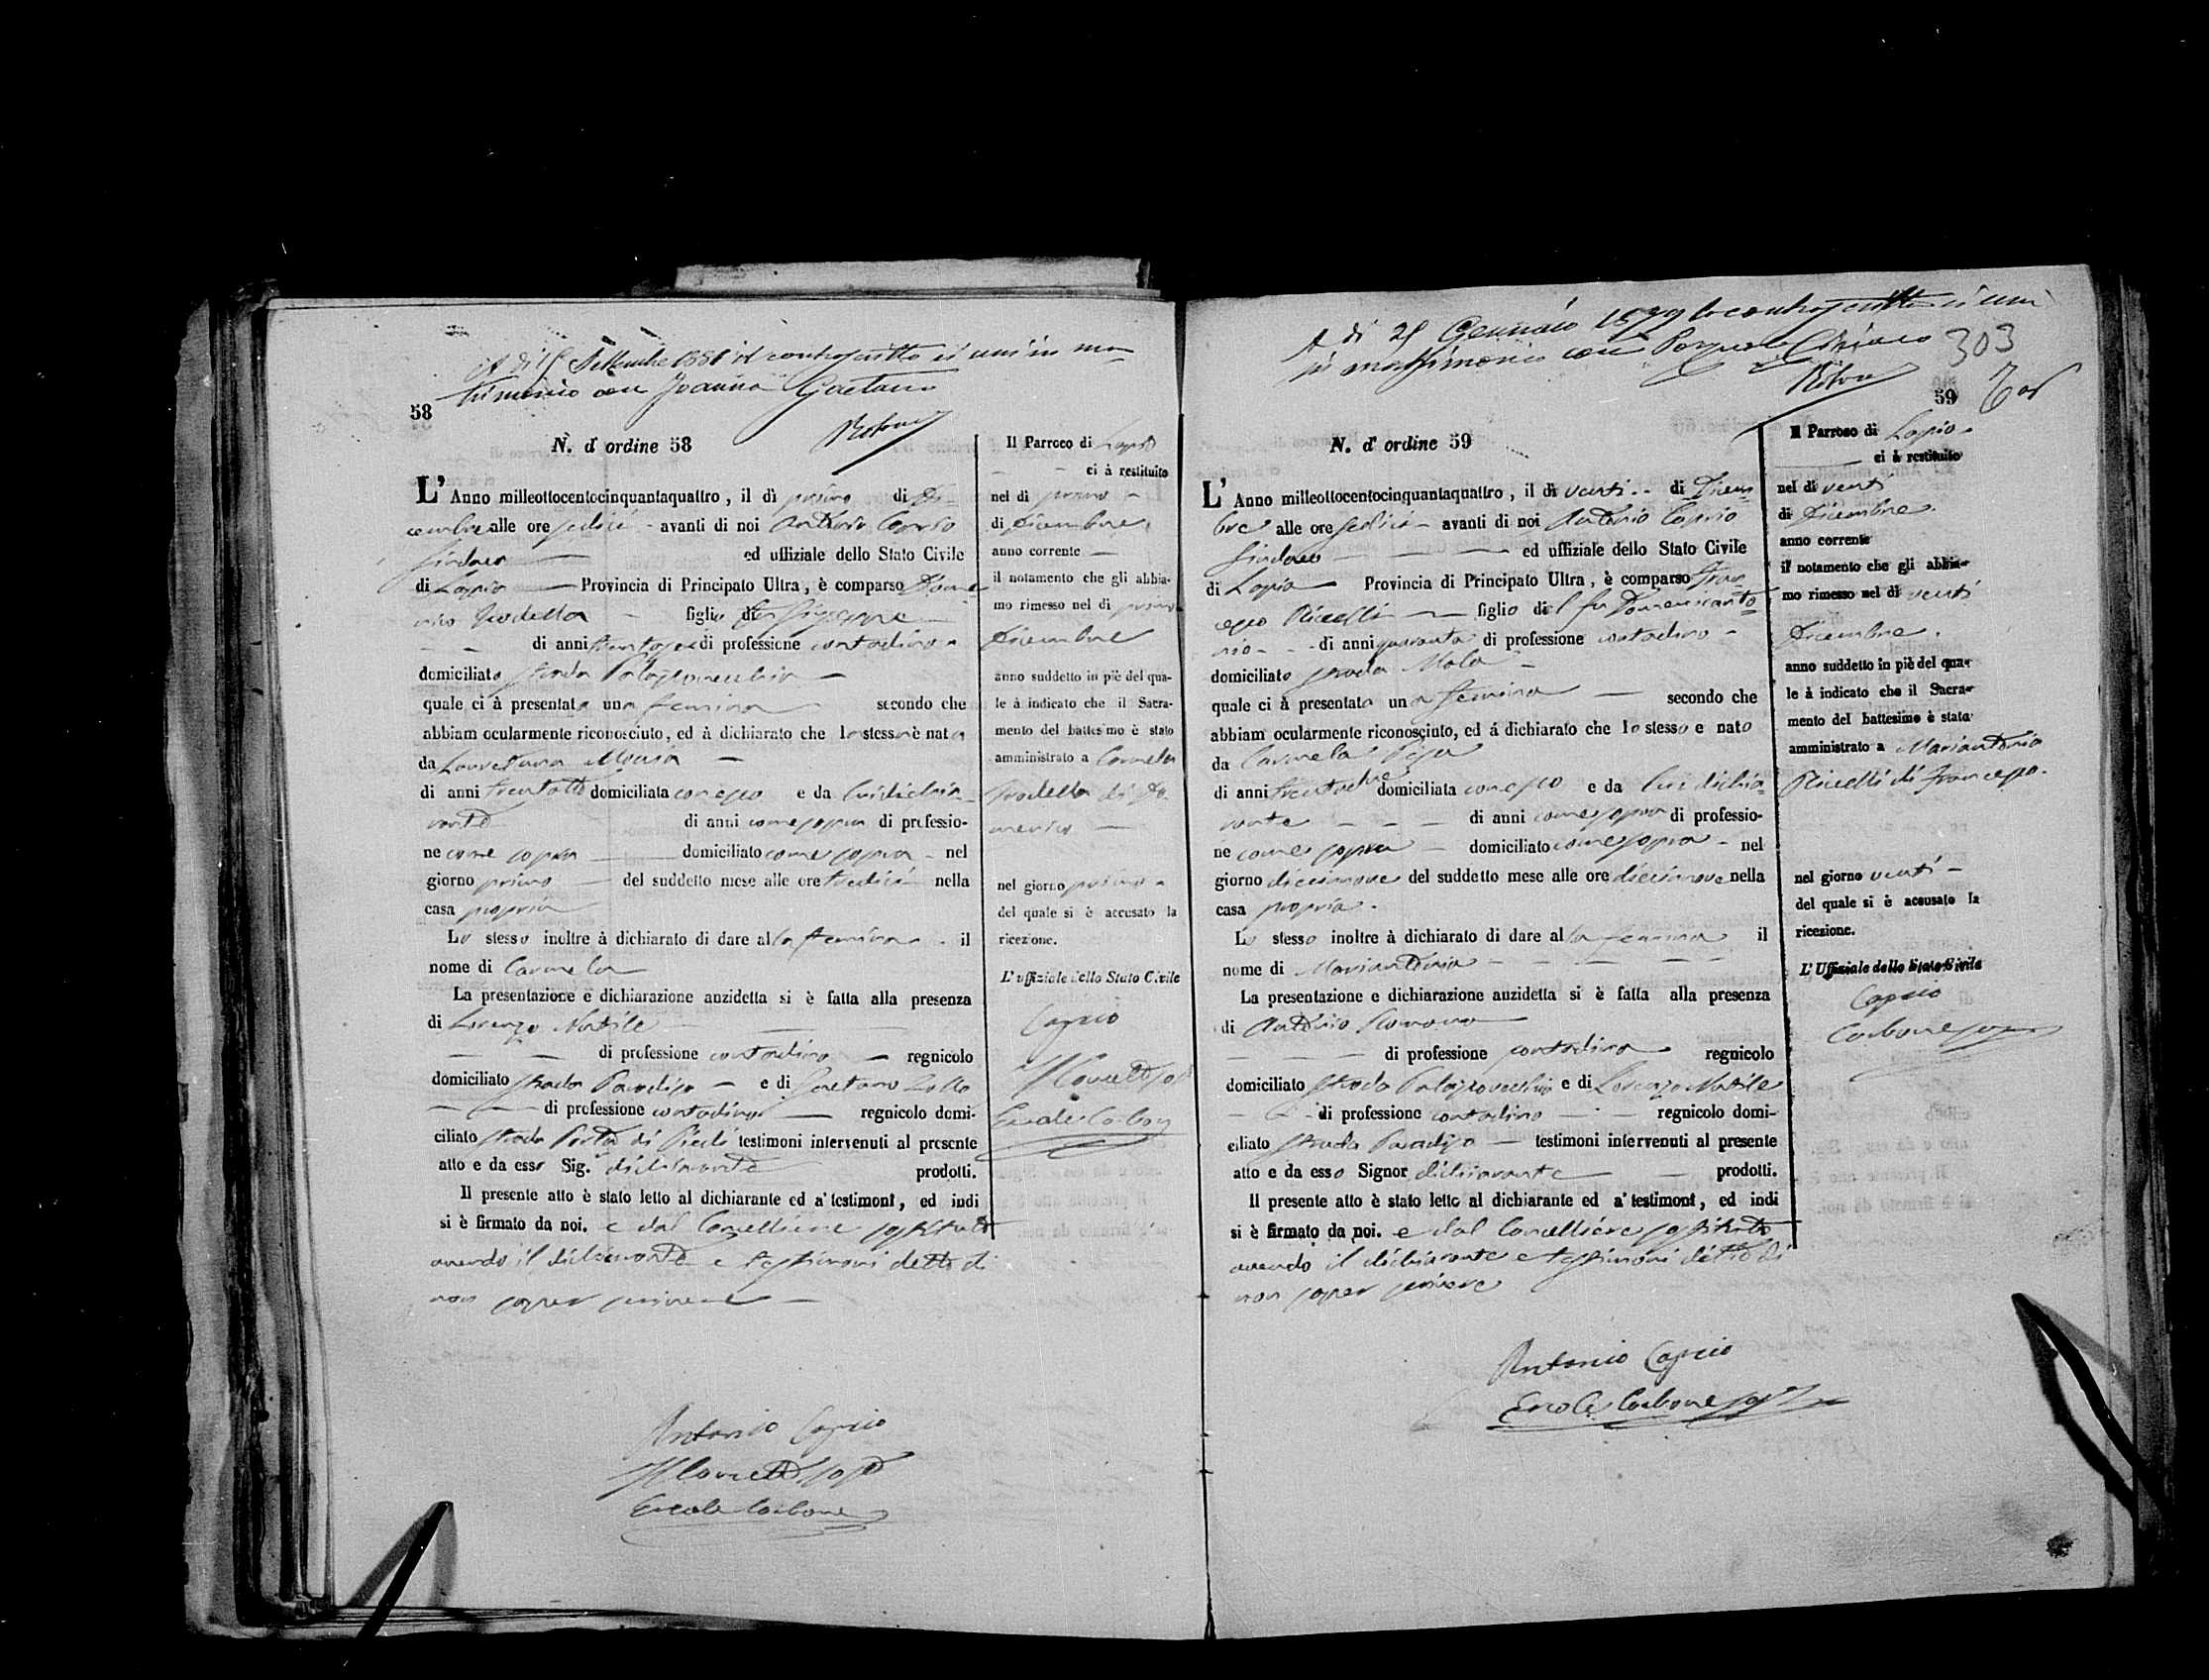 A dì Settembre 1881 il controscritto si unì in ma-
trimonio con Gaetano
58
N. d' ordine 58
L' Anno milleottocentocinquantaquattro, il dì primo di Di-
cembre alle ore sedici avanti di noi Antonio Caprio
Sindaco ed uffiziale dello Stato Civile
di Lapio Provincia di Principato Ultra, è comparso Dome-
nico figlio di Giuseppe
di anni trentasei di professione contadino
domiciliato strada Palazzovecchio
quale ci à presentata una femina secondo che
abbiam ocularmente riconosciuto, ed à dichiarato che lo stesso è nata
da
di anni trentotto domiciliata con esso e da lui dichia-
rante di anni come sopra di professio-
ne come sopra domiciliato come sopra nel
giorno primo del suddetto mese alle ore tredici nella
casa propria
Lo stesso inoltre à dichiarato di dare alla femina il
nome di Carmela
La presentazione e dichiarazione anzidetta si è fatta alla presenza
di Lorenzo
di professione contadino regnicolo
domiciliato strada Paradiso e di Gaetano
di professione contadino regnicolo domi-
ciliato strada Porta di testimoni intervenuti al presente
atto e da esso Sig. dichiarante prodotti.
Il presente atto è stato letto al dichiarante ed a' testimoni, ed indi
si è firmato da noi. e dal Cancelliere sostituto
avendo il dichiarante e testimoni detto di
non saper scrivere
Antonio Caprio
Ercole Carbone
Il Parroco di Lapio
ci à restituito
nel dì primo
di Dicembre
anno corrente
il notamento che gli abbia-
mo rimesso nel dì primo
Dicembre
anno suddetto in piè del qua-
le à indicato che il Sacra-
mento del battesimo è stato
amministrato a Carmela
di Do-
menico
nel giorno primo
del quale si è accusato la
ricezione.
L' uffiziale dello Stato Civile
Caprio
Ercole Carbone
A dì 25 Gennaio 1879 la controscritta si unì
in matrimonio con Pasquale
303
59
N. d' ordine 59
L' Anno milleottocentocinquantaquattro, il dì venti di Dicem-
bre alle ore sedici avanti di noi Antonio Caprio
Sindaco ed uffiziale dello Stato Civile
di Lapio Provincia di Principato Ultra, è comparso Fran-
cesco Ricelli figlio del fu Domenicanto-
nio di anni quaranta di professione contadino
domiciliato strada Mola
quale ci à presentato una femina secondo che
abbiam ocularmente riconosciuto, ed à dichiarato che lo stesso e nato
da Carmela
di anni domiciliata con esso e da lui dichia-
rante di anni come sopra di professio-
ne come sopra domiciliato come sopra nel
giorno diecinove del suddetto mese alle ore diecinove nella
casa propria.
Lo stesso inoltre à dichiarato di dare alla femina il
nome di Mariantonia
La presentazione e dichiarazione anzidetta si è fatta alla presenza
di Antonio Romano
di professione contadino regnicolo
domiciliato strada Palazzovecchio e di Lorenzo
di professione contadino regnicolo domi-
ciliato strada Paradiso testimoni intervenuti al presente
atto e da esso Signor dichiarante prodotti.
Il presente atto è stato letto al dichiarante ed a' testimoni, ed indi
si è firmato da noi. e dal Cancelliere sostituto
avendo il dichiarante e testimoni detto di
non saper scrivere
Antonio Caprio
Ercole Carbone
Il Parroco di Lapio
ci à restituito
nel dì venti
di Dicembre
anno corrente
il notamento che gli abbia-
mo rimesso nel dì venti
Dicembre.
anno suddetto in piè del qua-
le à indicato che il Sacra-
mento del battesimo è stato
amministrato a Mariantonia
Ricelli di Francesco.
nel giorno venti
del quale si è accusato la
ricezione.
L' Uffiziale dello Stato Civile
Caprio
Carbone